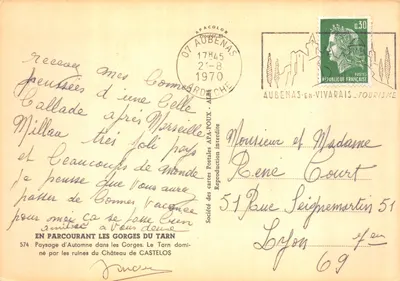 recevez mes bonnes
pensées d'une belle
ballade après Marseille
Millau très joli pays
et beaucoups de monde
je pense que vous avez
passer de bonnes vacances
pour moi ça se passe bien
amitiés à vous deux
EN PARCOURANT LES GORGES DU TARN
574 Paysage d'Automne dans les Gorges. Le Tarn domi-
né par les ruines du Château de CASTELOS
Société des cartes Postales APA-POUX - ALBI
Reproduction interdite
07 AUBENAS
17H45
21-8
1970
ARDECHE
AUBENAS-EN-VIVARAIS. TOURISME
0,30
REPUBLIQUE FRANÇAISE
Monsieur et Madame
René Court
51 Rue Seignemartin 51
Lyon 8
69